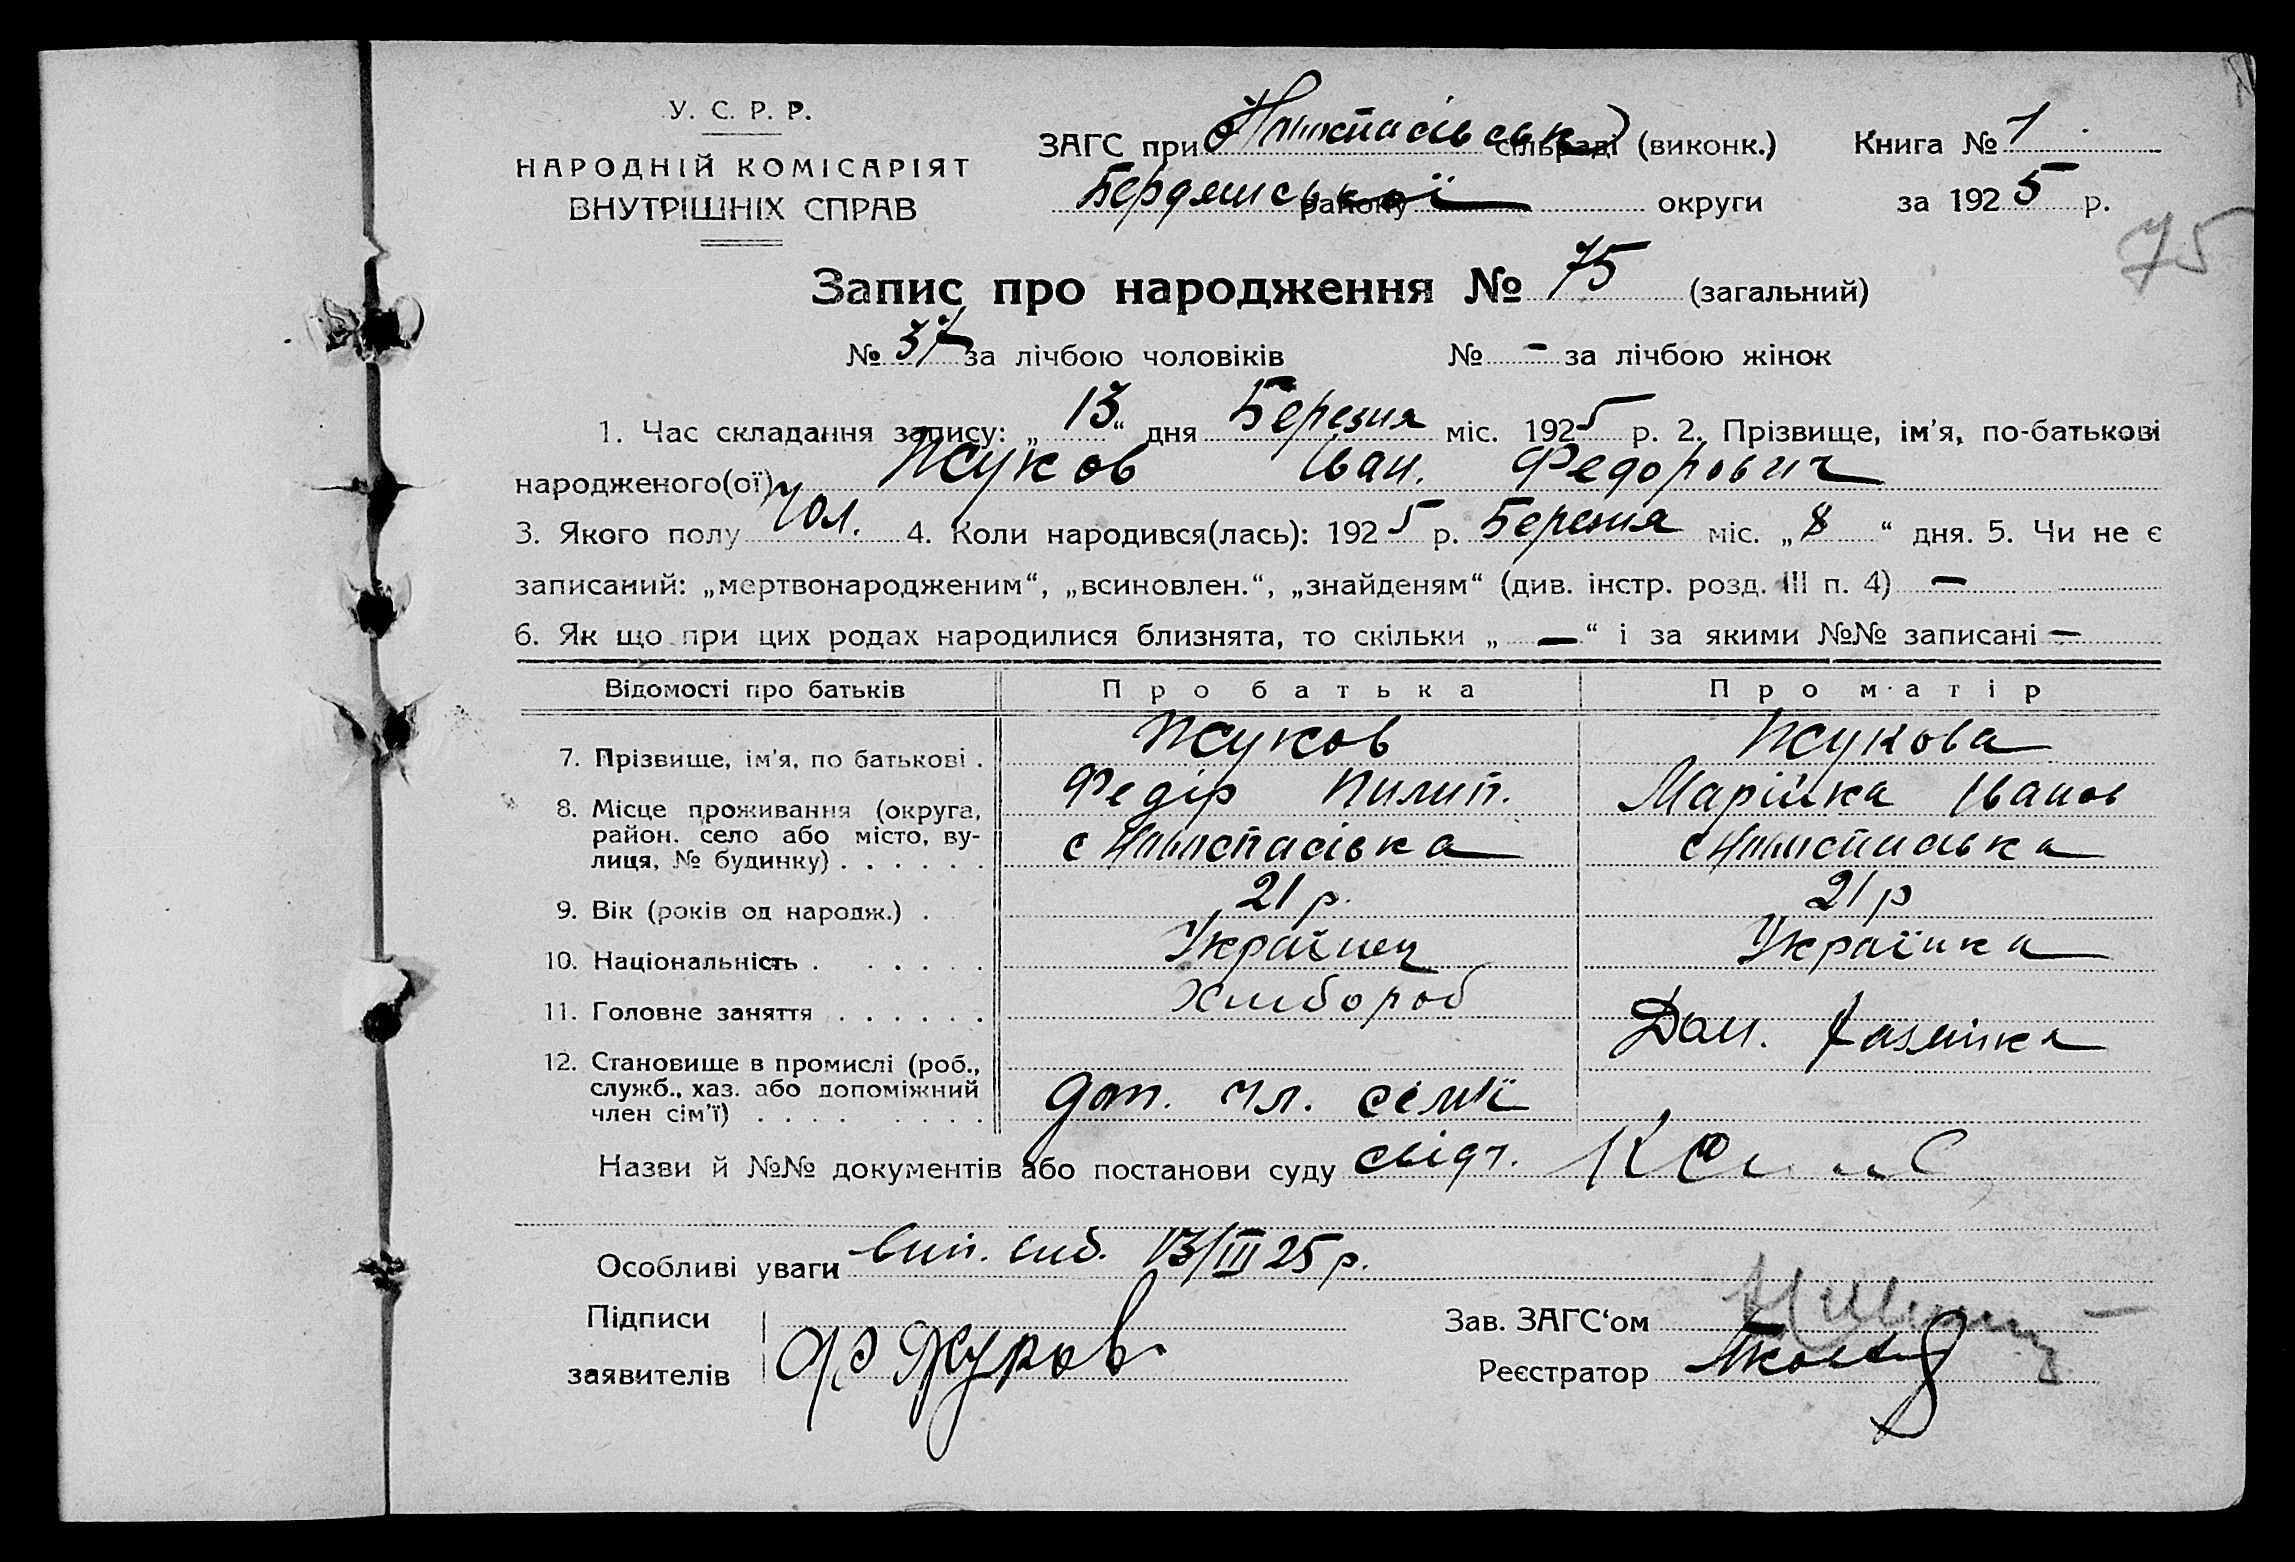 У. С. Р. Р.
НАРОДНІЙ КОМІСАРІЯТ
ВНУТРІШНІХ СПРАВ
ЗАГС при сільраді (виконк.) Книга № 1
Бердянської району округи за 1925 р.
75
Запис про народження № 75 (загальний)
№ 37 за лічбою чоловіків № - за лічбою жінок
1. Час складання запису: „13“ дня Березня міс. 1925 р. 2. Прізвище, ім'я, по-батькові
народженого(ої) Жуков Іван. Федорович
3. Якого полу Чол. 4. Коли народився(лась): 1925 р. Березня міс. „8“ дня. 5. Чи не є
записаний: „мертвонародженим“, „всиновлен.“, „знайденям“ (див. інстр. розд. III п. 4) —
6. Як що при цих родах народилися близнята, то скільки „—“ і за якими №№ записані —
Відомості про батьків Про батька Про матір
7. Прізвище, ім'я, по батькові . Жуков Жукова
Федір Пилип. Марійка Іванов
8. Місце проживання (округа, район, село або місто, вулиця, № будинку) . . . . . . с
9. Вік (років од народж.) . 21 р. 21 р
10. Національність . . . . . Українец Українка
11. Головне заняття . . . . . . Хлибороб
Дом. хазяйка
12. Становище в промислі (роб., служб., хаз. або допоміжний член сім'ї) . . . . . . . . доп. чл. сімї
Назви й №№ документів або постанови суду свідч.
Особливі уваги вип. 13/III 25 р.
Підписи
заявителів Ф Жуков
Зав. ЗАГС'ом
Реєстратор